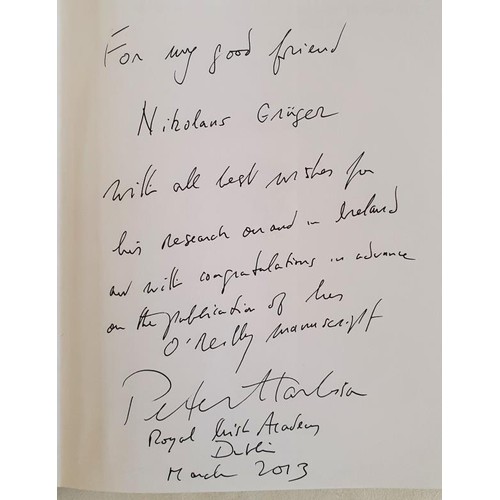 For my good friend
Nikolaus Grüger
with all best wishes for
his research on and in Ireland
and with congratulations in advance
on the publication of his
O'Reilly manuscript
Peter Harbison
Royal Irish Academy
Dublin
March 2013